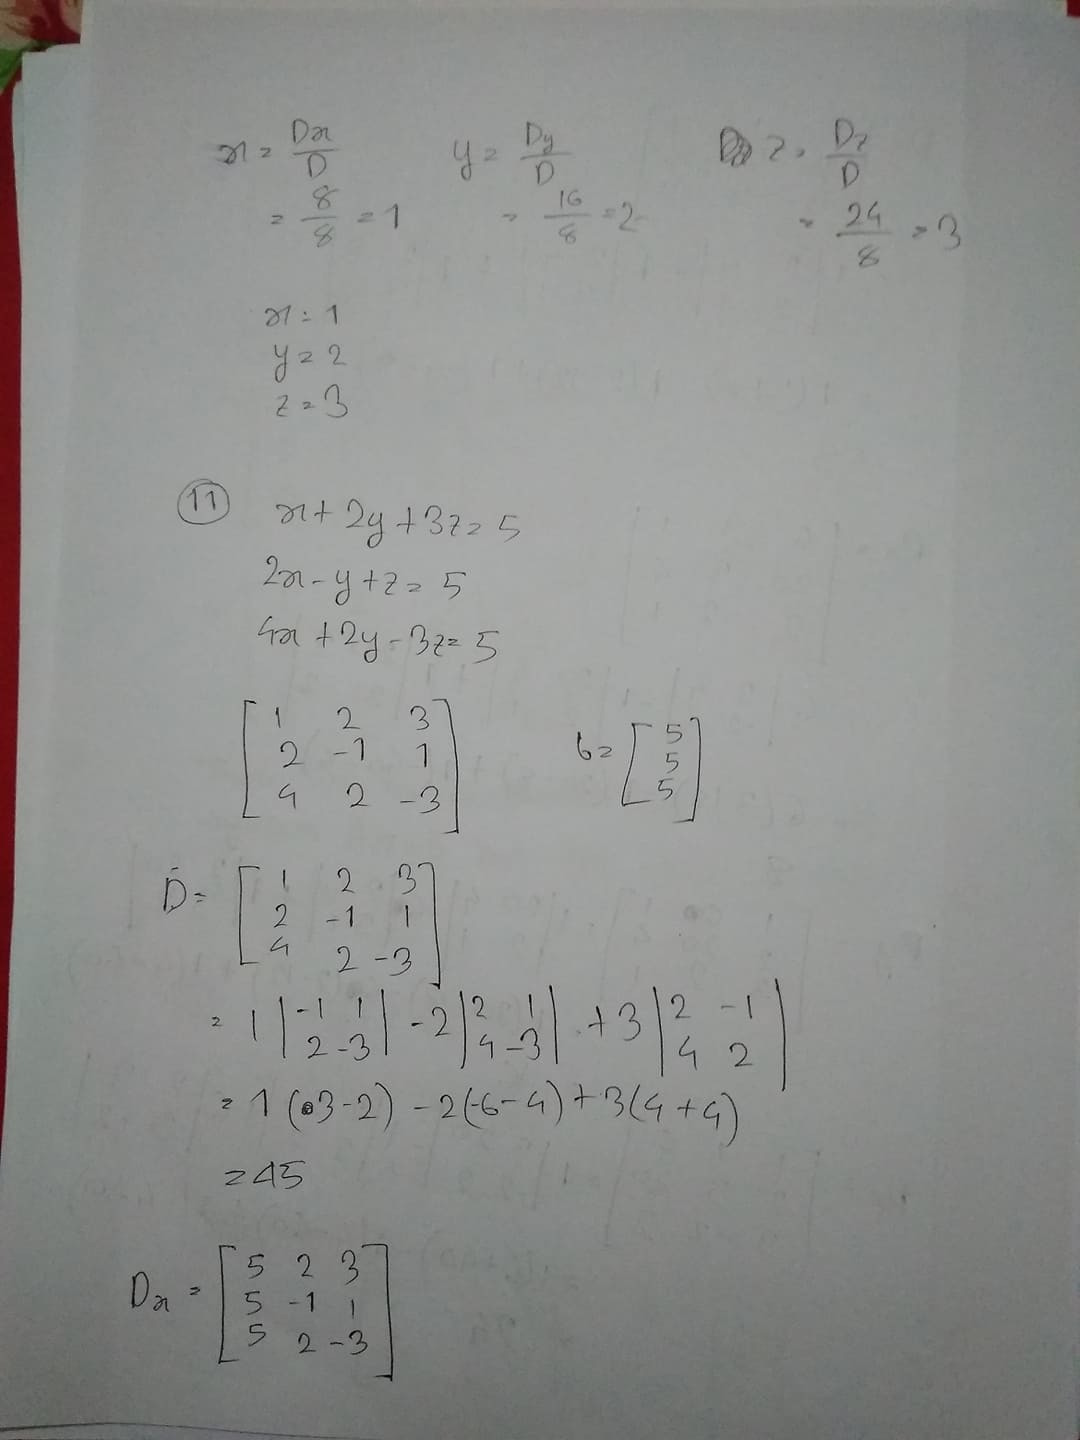 x = Dx/D y = Dy/D z = Dz/D
= 8/8 = 1 = 16/8 = 2 = 24/8 = 3
x = 1
y = 2
z = 3
11 x + 2y + 3z = 5
2x - y + z = 5
4x + 2y - 3z = 5
[1 2 3
2 -1 1
4 2 -3] b = [5
5
5]
D = [1 2 3
2 -1 1
4 2 -3]
= 1 |-1 1 2 -3| - 2 |2 1 4 -3| + 3 |2 -1 4 2|
= 1 (3-2) - 2(-6-4) + 3(4+4)
= 45
Dx = [5 2 3
5 -1 1
5 2 -3]